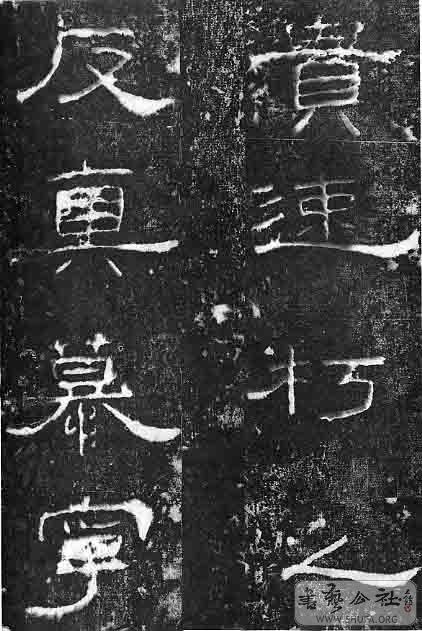 貴速朽之
反真慕寧
書藝公社
WWW.SHUFA.ORG